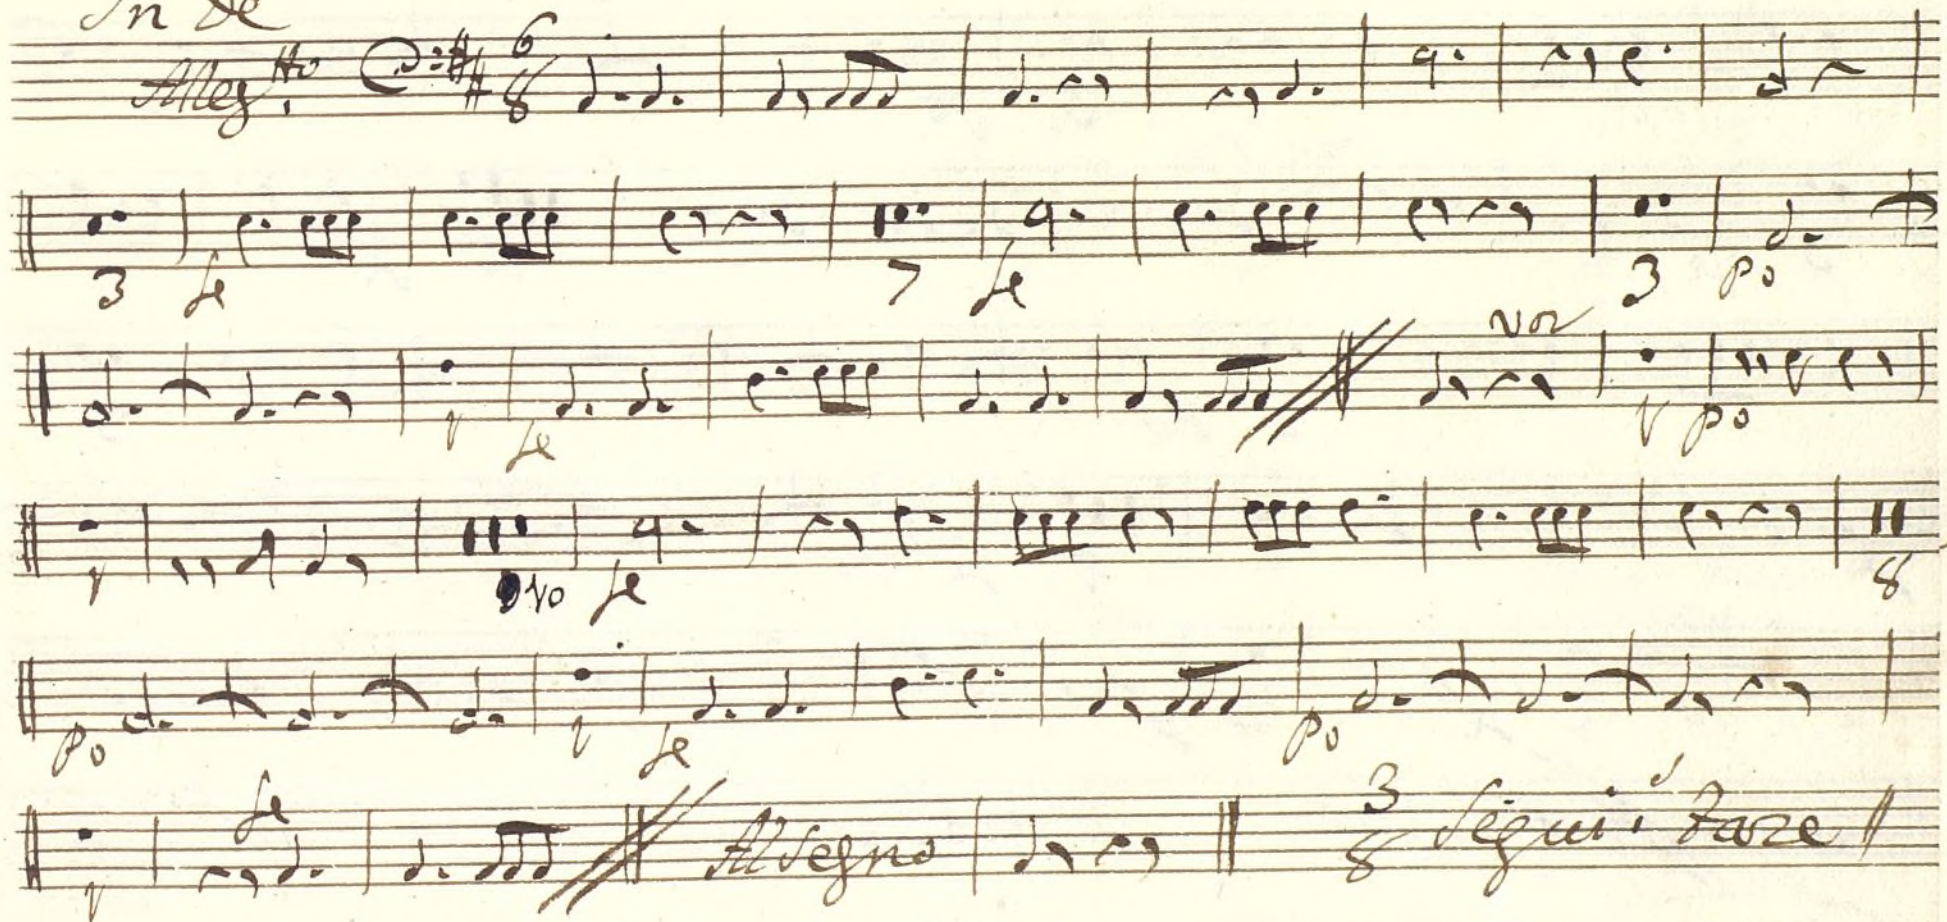 In De
Alleg.tto 6 8
3 fe 7 fe 3 po
voz
fe po
fe 8
po fe po
fe
Al Segno 3 8 Segui